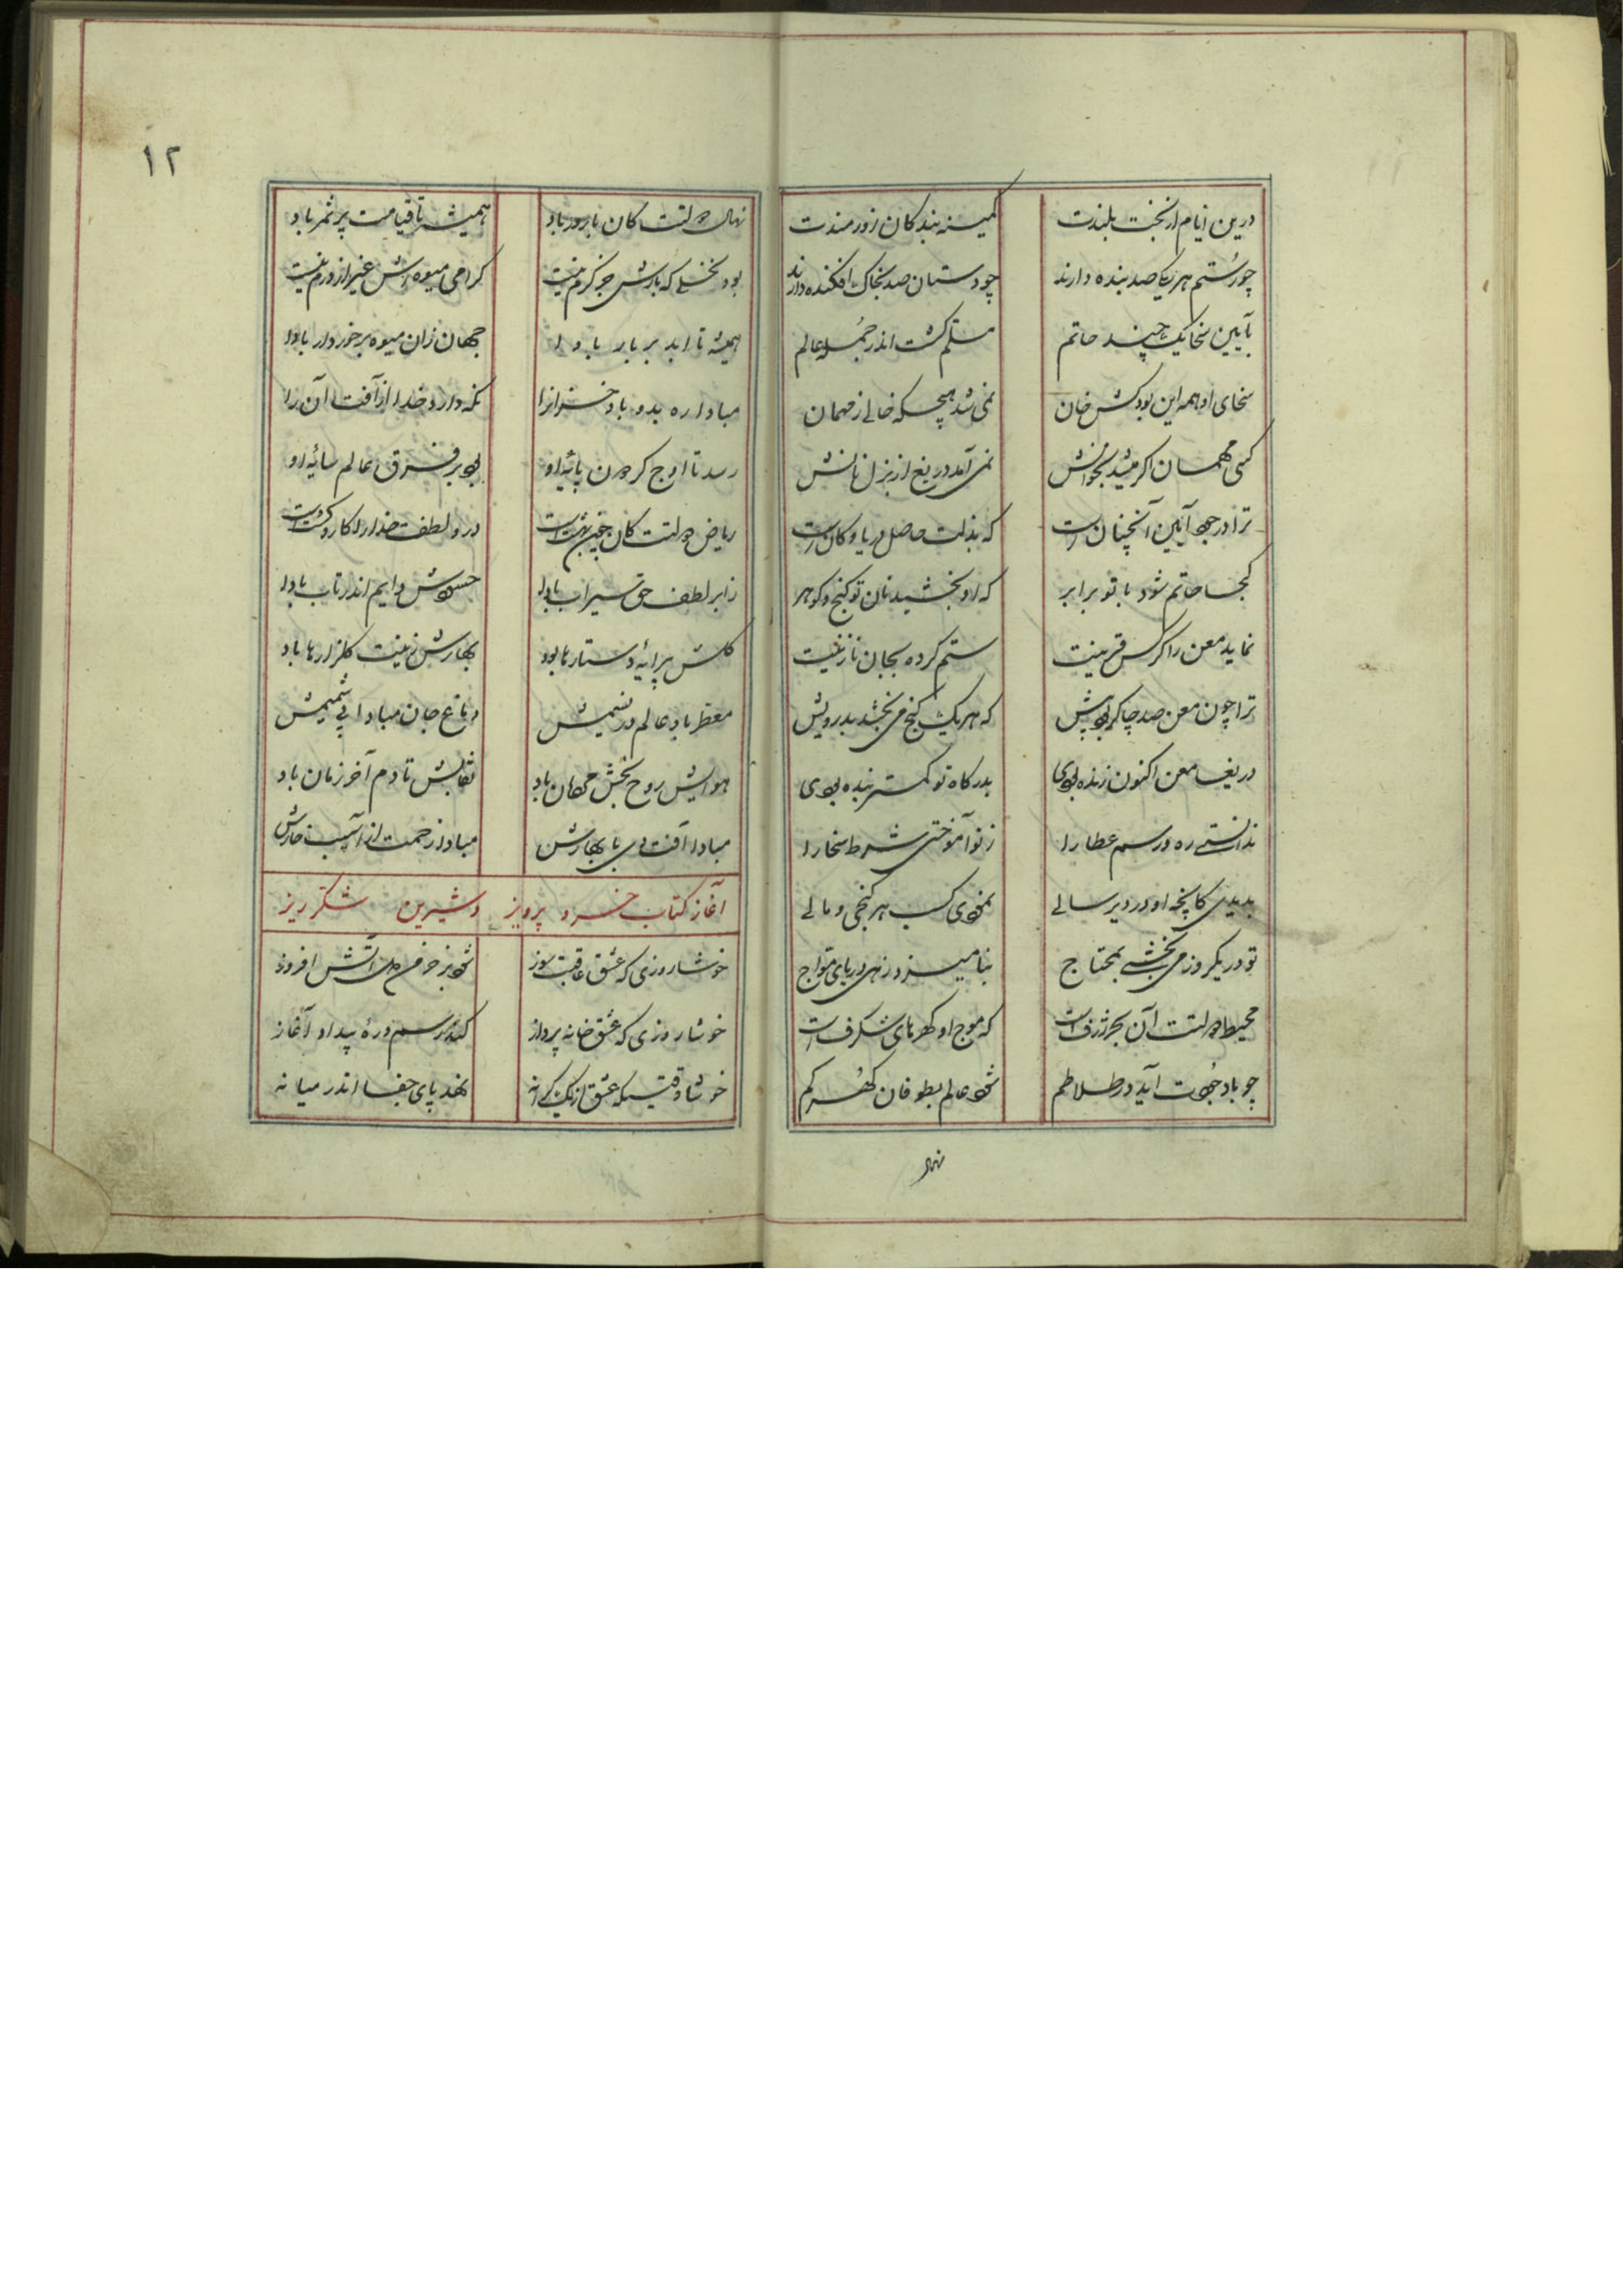 درین ایام از بخت بلندت کمینه بندکان زورمندت
چو رستم هر یکی صد بنده دارند چو دستان صد بخاک افکنده دارند
بآیین سخا یک چند حاتم مسلم کشت اندر جمله عالم
سخای او همه این بود کش خان نمی شد هیچکه خالی از مهمان
کسی مهمان اکر میشد بخوانش نمی آمد دریغ از بزل نانش
ترا در جود آیین آنچنان است که بذلت حاصل دریا و کان است
کجا حاتم شود با تو برابر که او بخشید نان تو کنج و کوهر
نماید معن را کر کس قرینت ستم کرده بجان نازنینت
ترا چون معن صد چاکر بود پیش که هر یک کنج می بخشد بدرویش
دریغا معن اکنون زنده بودی بدرکاه تو کمتر بنده بودی
ندانستی ره و رسم عطا را ز تو آموختی شرط سخا را
بدیدی کانچه او در دیر سالی نمودی کسب هر کنجی و مالی
تو در یکروز می بخشی بمحتاج بنامیزد زهی دریای مواج
محیط دولتت آن بحر ژرف است که موج او کهرهای شکرف است
چو باد جودت آید در طلاطم شود عالم بطوفان کهر کم
نهال
۱۲
نهال دولتت کان بارور باد همیشه تا قیامت پر ثمر باد
بود نخلی که بارش جز کرم نیست کرامی میوه اش غیر از درم نیست
همیشه تا ابد بر بار بادا جهان زان میوه برخوردار بادا
مبادا ره بدو باد خزانرا نکه دارد خدا از آفت آن را
رسد تا اوج کردون پایه او بود بر فرق عالم سایه او
ریاض دولتت کان چون بهشت است درو لطف خدا را کار و کشت است
ز ابر لطف حق سیراب بادا دایم اندر تاب بادا
کلش پیرایه دستارها بود بهارش زینت کلزارها باد
معطر باد عالم در نسیمش دماغ جان مبادا بی شمیمش
هوایش روح بخش جهان باد بقایش تا دم آخر زمان باد
مبادا آفت دی با بهارش مبادا زحمت از آسیب خارش
آغاز کتاب خسرو پرویز و شیرین شکر ریز
خوشا روزی که عشق عاقبت سوز شود در خرمن دل آتش افروز
خوشا روزی که عشق خانه پرداز کند رسم و ره بیداد آغاز
خوشا وقتیکه عشق از یک کرانه نهد پای جفا اندر میانه